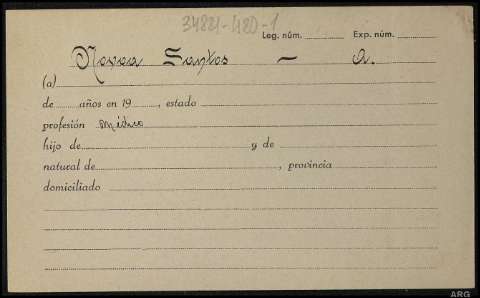 34884-480-1
Leg. núm. Exp. núm.
Novoa Santos — A.
(a)
de años en 19 , estado
profesión médico
hijo de y de
natural de , provincia
domiciliado
ARG